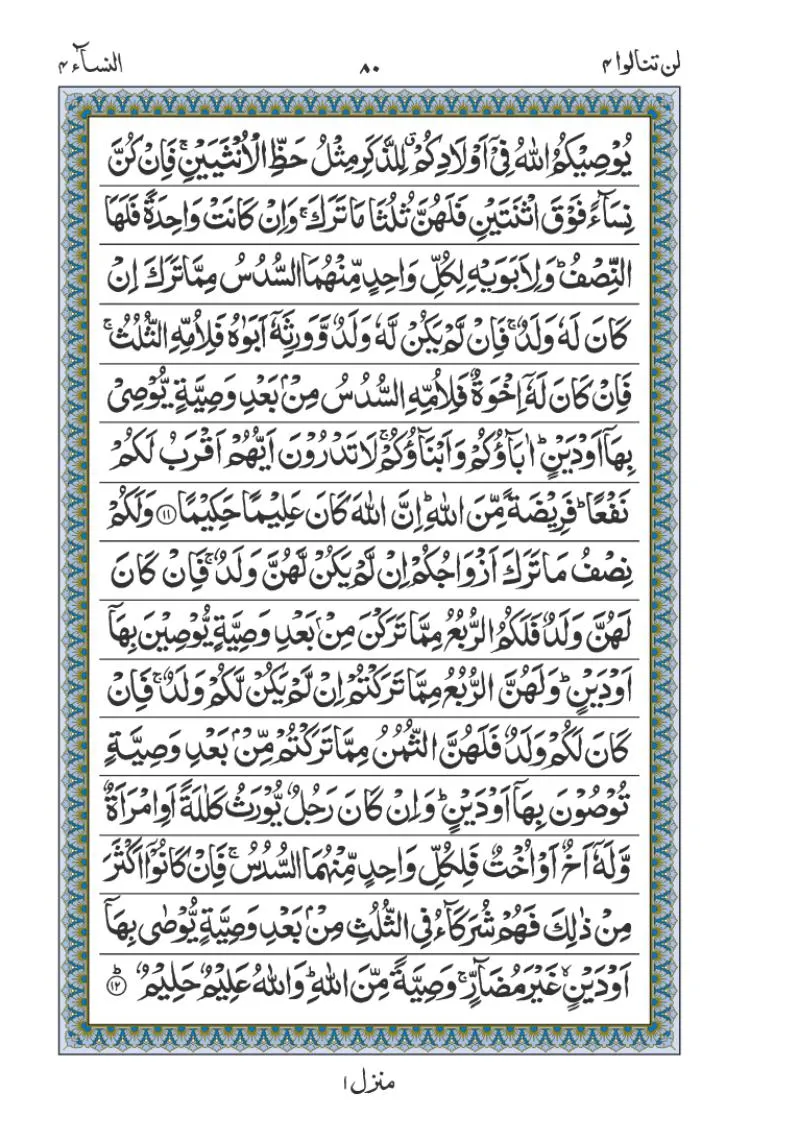 لن تنالوا ۴ ۸۰ النسآء ۴
يُوۡصِيۡكُمُ اللّٰهُ فِىۡۤ اَوۡلَادِكُمۡ‌ ۖ لِلذَّكَرِ مِثۡلُ حَظِّ الۡاُنۡثَيَيۡنِ‌ ۚ فَاِنۡ كُنَّ
نِسَآءً فَوۡقَ اثۡنَتَيۡنِ فَلَهُنَّ ثُلُثَا مَا تَرَكَ‌ ۚ وَاِنۡ كَانَتۡ وَاحِدَةً فَلَهَا
النِّصۡفُ‌ ؕ وَلِاَبَوَيۡهِ لِكُلِّ وَاحِدٍ مِّنۡهُمَا السُّدُسُ مِمَّا تَرَكَ اِنۡ
كَانَ لَهٗ وَلَدٌ‌ ۚ فَاِنۡ لَّمۡ يَكُنۡ لَّهٗ وَلَدٌ وَّوَرِثَهٗۤ اَبَوٰهُ فَلِاُمِّهِ الثُّلُثُ‌ ۚ
فَاِنۡ كَانَ لَهٗۤ اِخۡوَةٌ فَلِاُمِّهِ السُّدُسُ مِنۡۢ بَعۡدِ وَصِيَّةٍ يُّوۡصِىۡ
بِهَاۤ اَوۡ دَيۡنٍ‌ ؕ اٰبَآؤُكُمۡ وَاَبۡنَآؤُكُمۡ‌ ۚ لَا تَدۡرُوۡنَ اَيُّهُمۡ اَقۡرَبُ لَكُمۡ
نَفۡعًا‌ ؕ فَرِيۡضَةً مِّنَ اللّٰهِ ‌ؕ اِنَّ اللّٰهَ كَانَ عَلِيۡمًا حَكِيۡمًا ‏﴿۱۱﴾ وَلَكُمۡ
نِصۡفُ مَا تَرَكَ اَزۡوَاجُكُمۡ اِنۡ لَّمۡ يَكُنۡ لَّهُنَّ وَلَدٌ‌ ۚ فَاِنۡ كَانَ
لَهُنَّ وَلَدٌ فَلَكُمُ الرُّبُعُ مِمَّا تَرَكۡنَ‌ مِنۡۢ بَعۡدِ وَصِيَّةٍ يُّوۡصِيۡنَ بِهَاۤ
اَوۡ دَيۡنٍ‌ ؕ وَلَهُنَّ الرُّبُعُ مِمَّا تَرَكۡتُمۡ اِنۡ لَّمۡ يَكُنۡ لَّكُمۡ وَلَدٌ‌ ۚ فَاِنۡ
كَانَ لَكُمۡ وَلَدٌ فَلَهُنَّ الثُّمُنُ مِمَّا تَرَكۡتُمۡ‌ مِّنۡۢ بَعۡدِ وَصِيَّةٍ
تُوۡصُوۡنَ بِهَاۤ اَوۡ دَيۡنٍ‌ ؕ وَاِنۡ كَانَ رَجُلٌ يُّوۡرَثُ كَلٰلَةً اَوِ امۡرَاَةٌ
وَّلَهٗۤ اَخٌ اَوۡ اُخۡتٌ فَلِكُلِّ وَاحِدٍ مِّنۡهُمَا السُّدُسُ‌ ۚ فَاِنۡ كَانُوۡۤا اَكۡثَرَ
مِنۡ ذٰلِكَ فَهُمۡ شُرَكَآءُ فِى الثُّلُثِ مِنۡۢ بَعۡدِ وَصِيَّةٍ يُّوۡصٰى بِهَاۤ
اَوۡ دَيۡنٍ ۙ غَيۡرَ مُضَآرٍّ‌ ۚ وَصِيَّةً مِّنَ اللّٰهِ‌ ؕ وَاللّٰهُ عَلِيۡمٌ حَلِيۡمٌ ؕ‏﴿۱۲﴾
منزل ۱